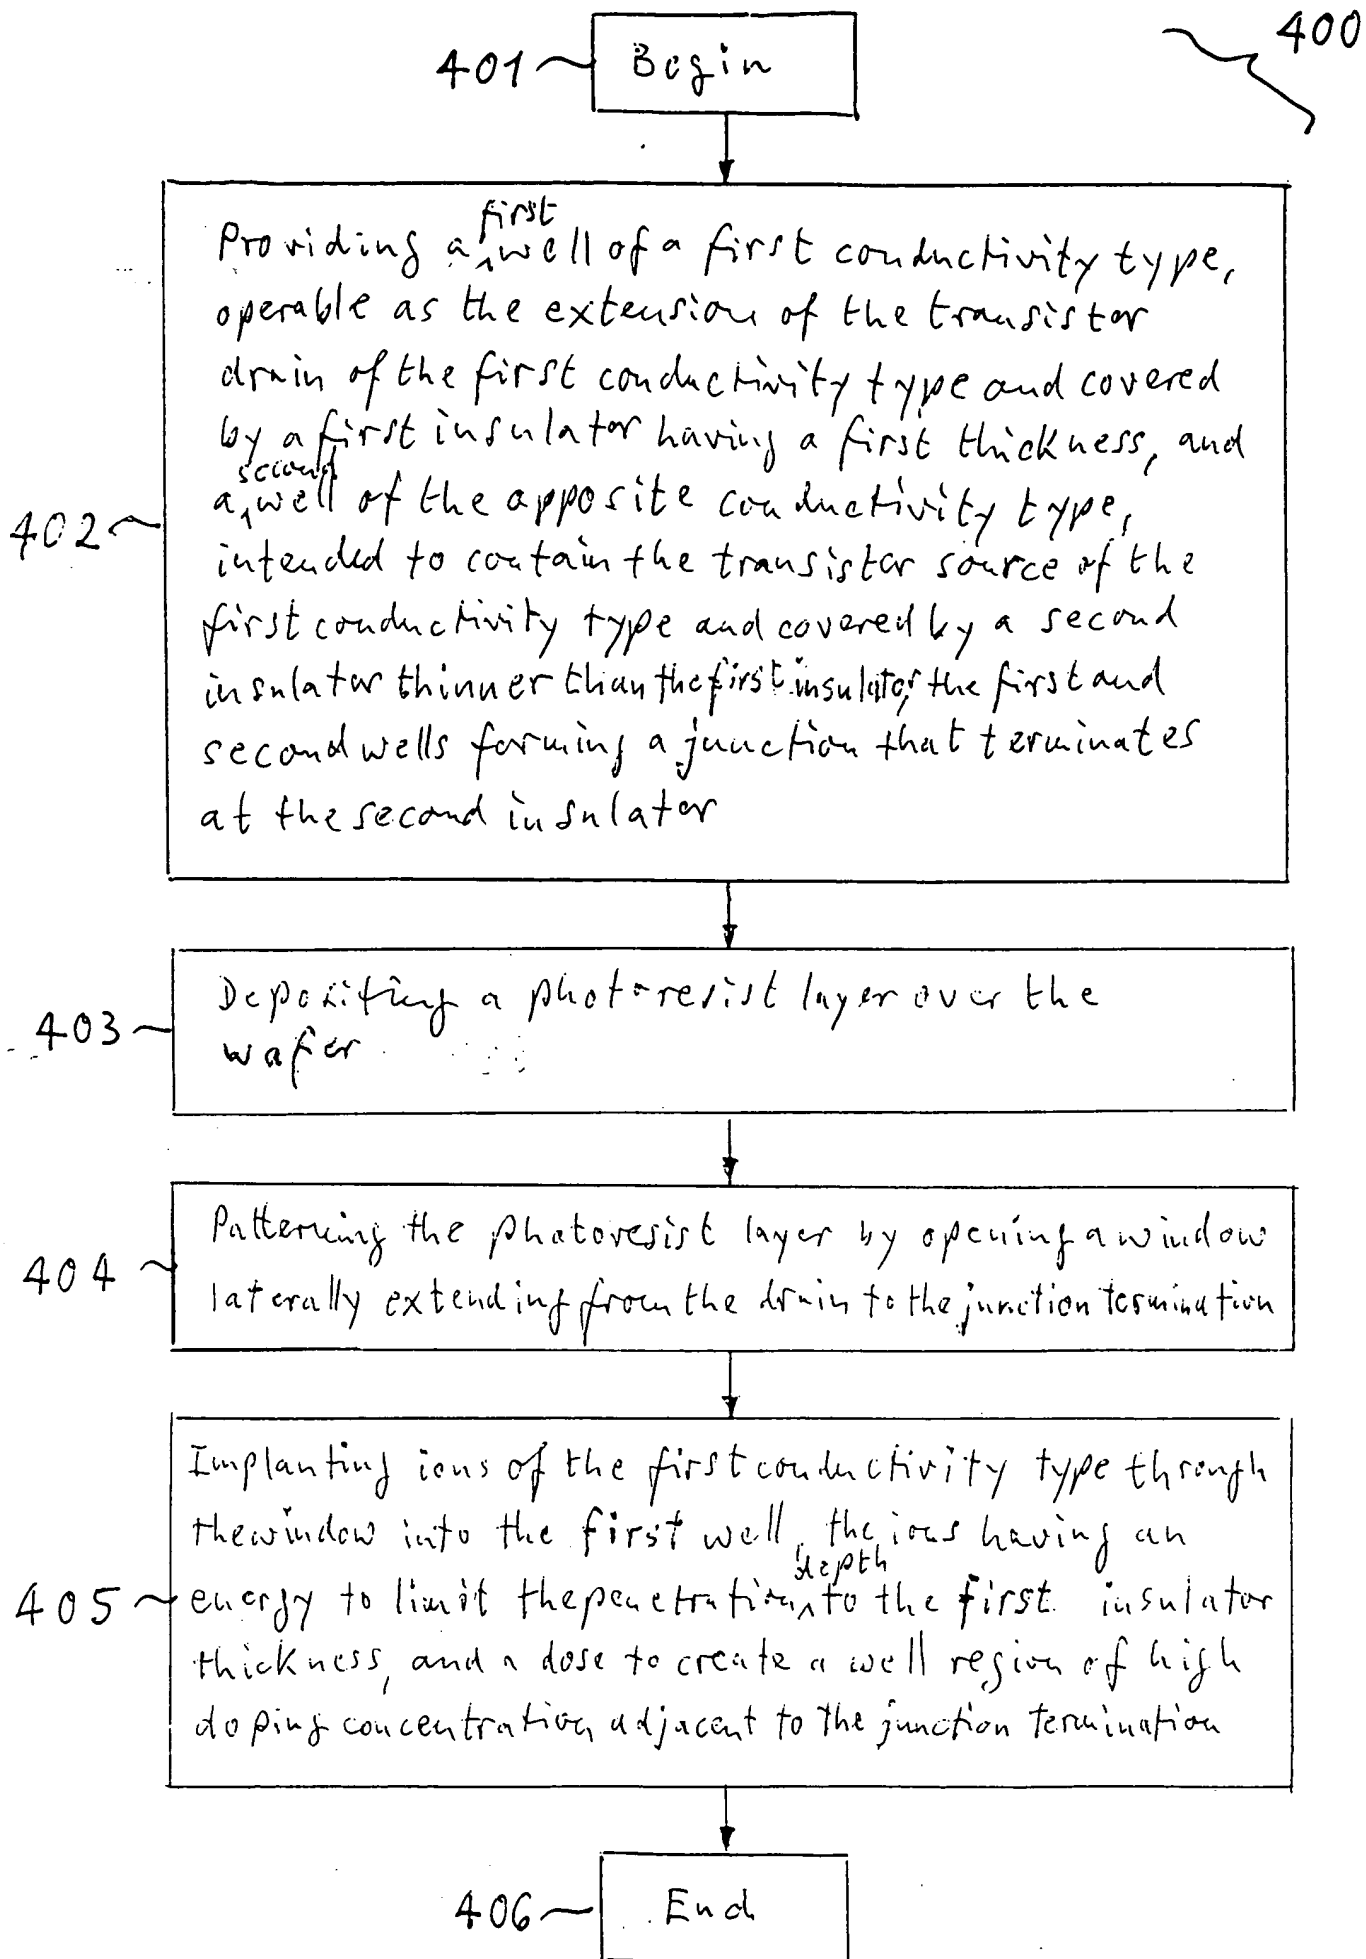 400
401 Begin
Providing a first well of a first conductivity type,
operable as the extension of the transistor
drain of the first conductivity type and covered
by a first insulator having a first thickness, and
a second well of the opposite conductivity type,
402
intended to contain the transistor source of the
first conductivity type and covered by a second
insulator thinner than the first insulator, the first and
second wells forming a junction that terminates
at the second insulator
Depositing a photoresist layer over the
403
wafer
Patterning the photoresist layer by opening a window
404
laterally extending from the drain to the junction termination
Implanting ions of the first conductivity type through
the window into the first well, the ions having an
405 energy to limit the penetration depth to the first insulator
thickness, and a dose to create a well region of high
doping concentration adjacent to the junction termination
406 End